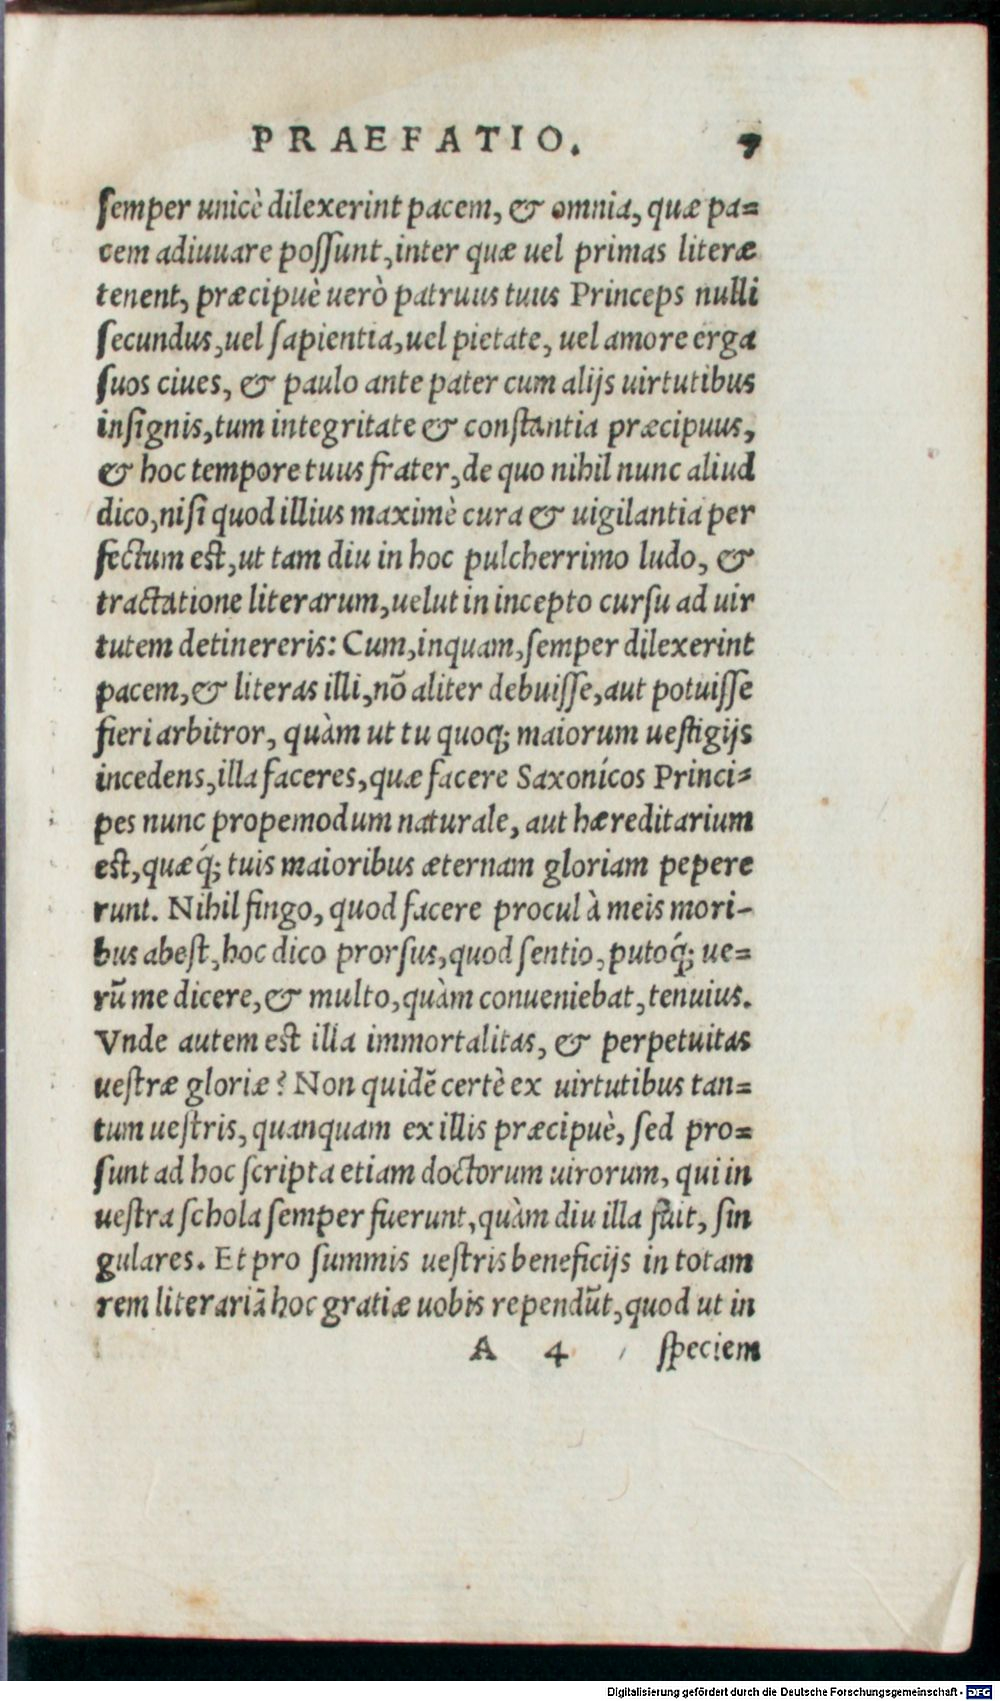 PRAEFATIO. 7
semper unicè dilexerint pacem, & omnia, quæ pa=
cem adiuuare possunt, inter quæ uel primas literæ
tenent, præcipuè uerò patruus tuus Princeps nulli
secundus, uel sapientia, uel pietate, uel amore erga
suos ciues, & paulo ante pater cum alijs uirtutibus
insignis, tum integritate & constantia præcipuus,
& hoc tempore tuus frater, de quo nihil nunc aliud
dico, nisi quod illius maximè cura & uigilantia per
fectum est, ut tam diu in hoc pulcherrimo ludo, &
tractatione literarum, uelut in incepto cursu ad uir
tutem detinereris: Cum, inquam, semper dilexerint
pacem, & literas illi, nõ aliter debuisse, aut potuisse
fieri arbitror, quàm ut tu quoq; maiorum uestigijs
incedens, illa faceres, quæ facere Saxonícos Princi=
pes nunc propemodum naturale, aut hæreditarium
est, quæq́; tuis maioribus æternam gloriam pepere
runt. Nihil fingo, quod facere procul à meis mori-
bus abest, hoc dico prorsus, quod sentio, putoq́; ue=
rũ me dicere, & multo, quàm conueniebat, tenuius.
Vnde autem est illa immortalitas, & perpetuitas
uestræ gloriæ? Non quidẽ certè ex uirtutibus tan=
tum uestris, quanquam ex illis præcipuè, sed pro=
sunt ad hoc scripta etiam doctorum uirorum, qui in
uestra schola semper fuerunt, quàm diu illa fuit, sin
gulares. Et pro summis uestris beneficijs in totam
rem literariã hoc gratiæ uobis rependũt, quod ut in
A 4 speciem
Digitalisierung gefördert durch die Deutsche Forschungsgemeinschaft - DFG